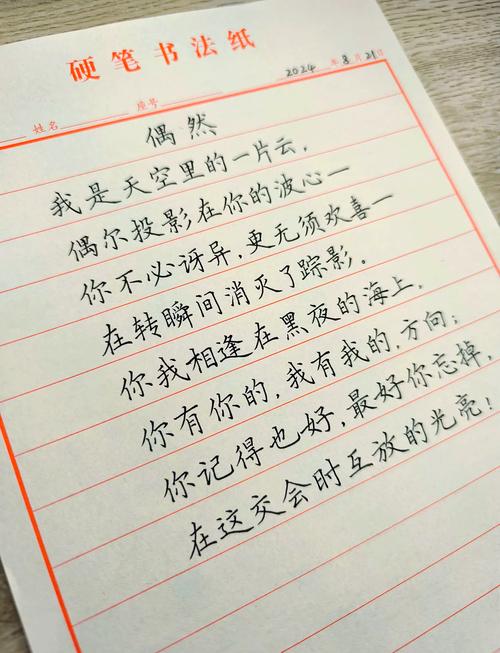 硬笔书法纸
2024年8月21日
姓名 座号
偶然
我是天空里的一片云，
偶尔投影在你的波心一
你不必讶异，更无须欢喜一
在转瞬间消灭了踪影。
你我相逢在黑夜的海上，
你有你的，我有我的，方向；
你记得也好，最好你忘掉，
在这交会时互放的光亮！